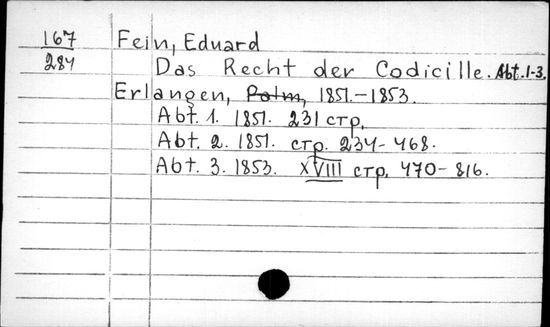 167 Fein, Eduard
287 Das Recht der Codicille. Abt. 1-3.
Erlangen, Palm, 1851.-1853.
Abt. 1. 1851. 231 стр.
Abt. 2. 1851. стр. 234-468.
Abt. 3. 1853. XVIII стр. 470-816.